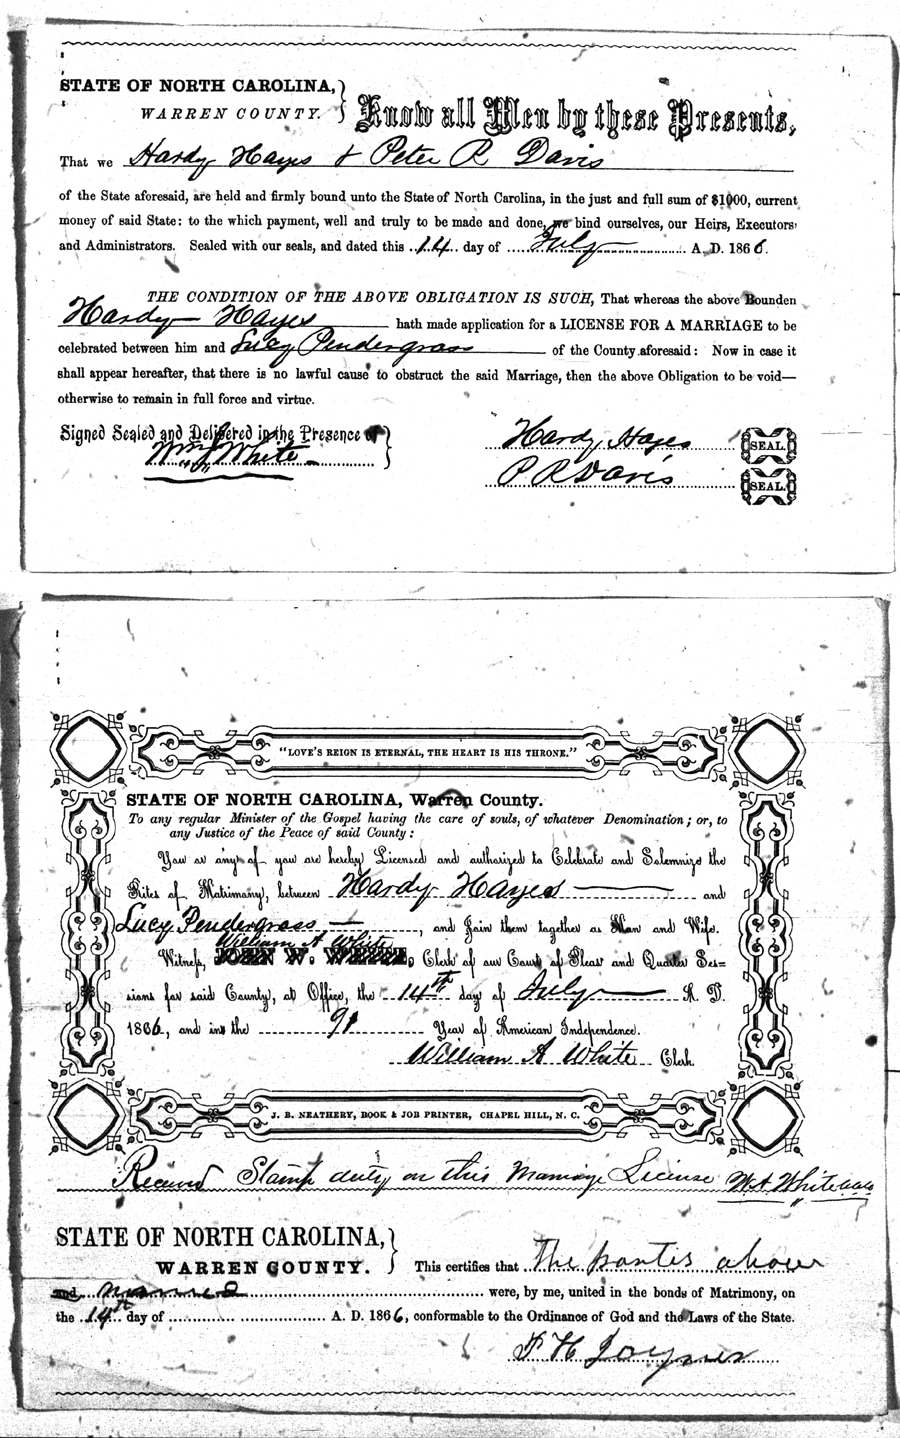 STATE OF NORTH CAROLINA,
WARREN COUNTY.
Know all Men by these Presents,
That we Hardy Hayes & Peter R Davis
of the State aforesaid, are held and firmly bound unto the State of North Carolina, in the just and full sum of $1000, current
money of said State: to the which payment, well and truly to be made and done, we bind ourselves, our Heirs, Executors
and Administrators. Sealed with our seals, and dated this 14 day of July A. D. 1866.
THE CONDITION OF THE ABOVE OBLIGATION IS SUCH, That whereas the above Bounden
Hardy Hayes hath made application for a LICENSE FOR A MARRIAGE to be
celebrated between him and Lucy Pendergrass of the County aforesaid: Now in case it
shall appear hereafter, that there is no lawful cause to obstruct the said Marriage, then the above Obligation to be void—
otherwise to remain in full force and virtue.
Signed Sealed and Delivered in the Presence of
Wm J White
Hardy Hayes SEAL.
P. R Davis SEAL.
"LOVE'S REIGN IS ETERNAL, THE HEART IS HIS THRONE."
STATE OF NORTH CAROLINA, Warren County.
To any regular Minister of the Gospel having the care of souls, of whatever Denomination; or, to
any Justice of the Peace of said County:
You or any of you are hereby Licensed and authorized to Celebrate and Solemnize the
Rites of Matrimony, between Hardy Hayes and
Lucy Pendergrass, and Join them together as Man and Wife.
William A White
Witness, JOHN W. WHITE, Clerk of our Court of Pleas and Quarter Ses=
sions for said County, at Office, the 14th day of July A. D.
1866, and in the 91 Year of American Independence.
William A White Clerk.
J. B. NEATHERY, BOOK & JOB PRINTER, CHAPEL HILL, N. C.
Received Stamp duty on this Marriage License W A White
STATE OF NORTH CAROLINA,
WARREN COUNTY.
This certifies that The parties above
and named were, by me, united in the bonds of Matrimony, on
the 14th day of A. D. 1866, conformable to the Ordinance of God and the Laws of the State.
H Joyner